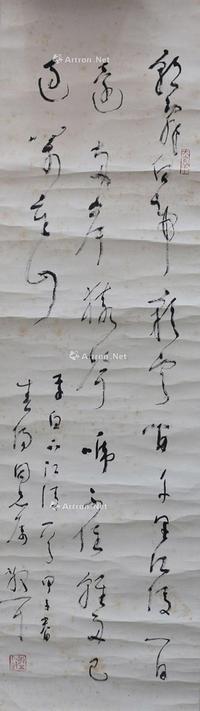 朝辞白帝彩云间千里江陵一日
还两岸猿声啼不住轻舟已
过万重山
李白下江陵一首甲子春
同志属
Artron.Net
Artron.Net
Artron.Net
Artron.Net